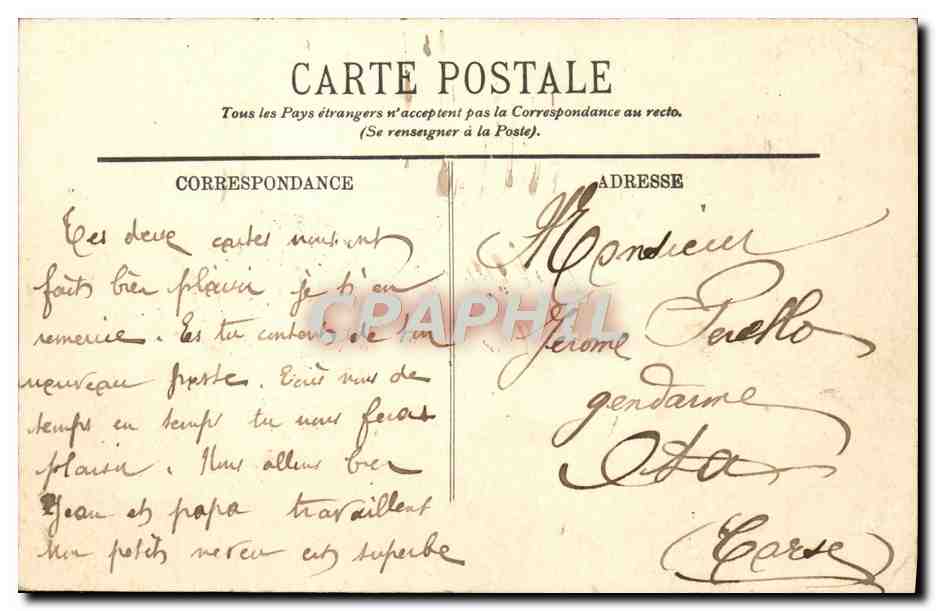 CARTE POSTALE
Tous les Pays étrangers n'acceptent pas la Correspondance au recto.
(Se renseigner à la Poste).
CORRESPONDANCE
Tes deux cartes nous ont
fait bien plaisir je t'en
remercie. Es tu content de ton
nouveau poste. Ecris nous de
temps en temps tu nous feras
plaisir. Nous allons bien
Jean et papa travaillent
Mon petit neveu est superbe
ADRESSE
Monsieur
Jérome
gendarme
Ota
(Corse)
CPARHIL